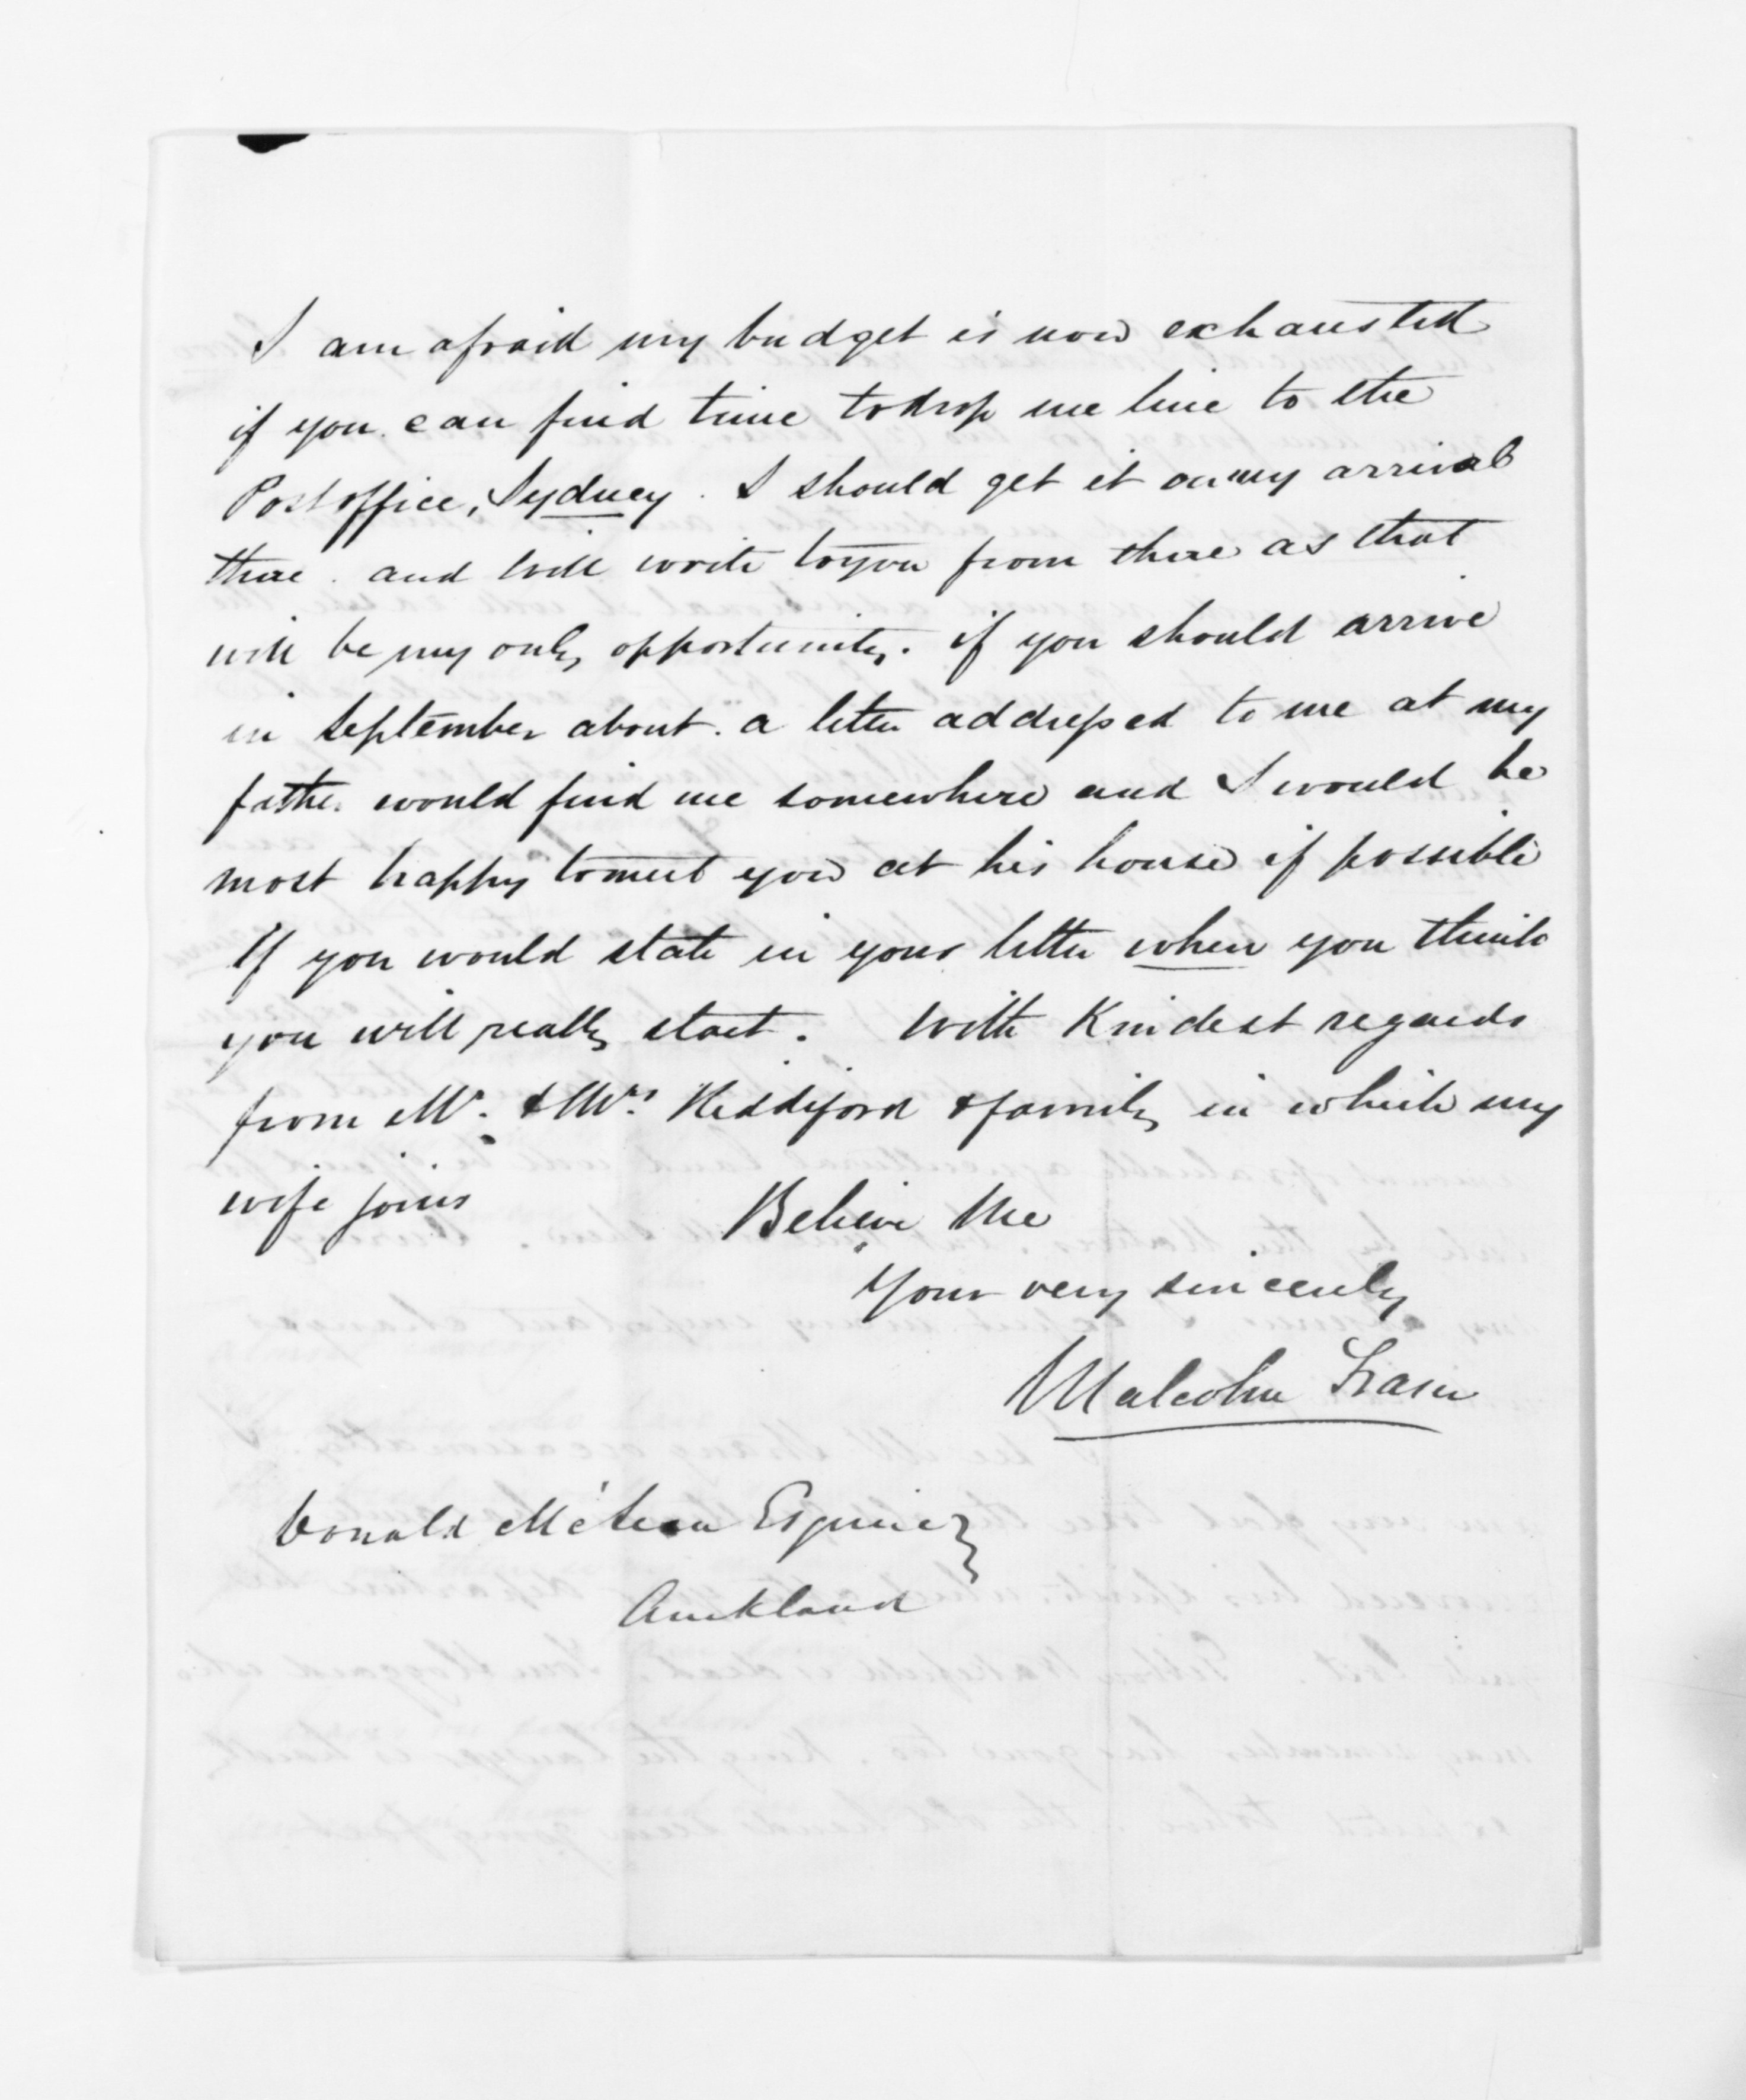 I am afraid my budget is now exhausted
if you can find time to drop me line to the
Post office, Sydney. I should get it on my arrival
there. and will write to you from there as that
will be my only opportunity. if you should arrive
in September about. a letter addressed to me at my
father would find me somewhere and I would be
most happy to meet you at his house if possible
If you would state in your letter when you think
you will really start. With Kindest regards
from Mr. & Mrs. Riddiford & family in which my
wife joins
Believe Me
Your very sincerely
Malcolm Fraser
Donald McLean Esquire
Auckland